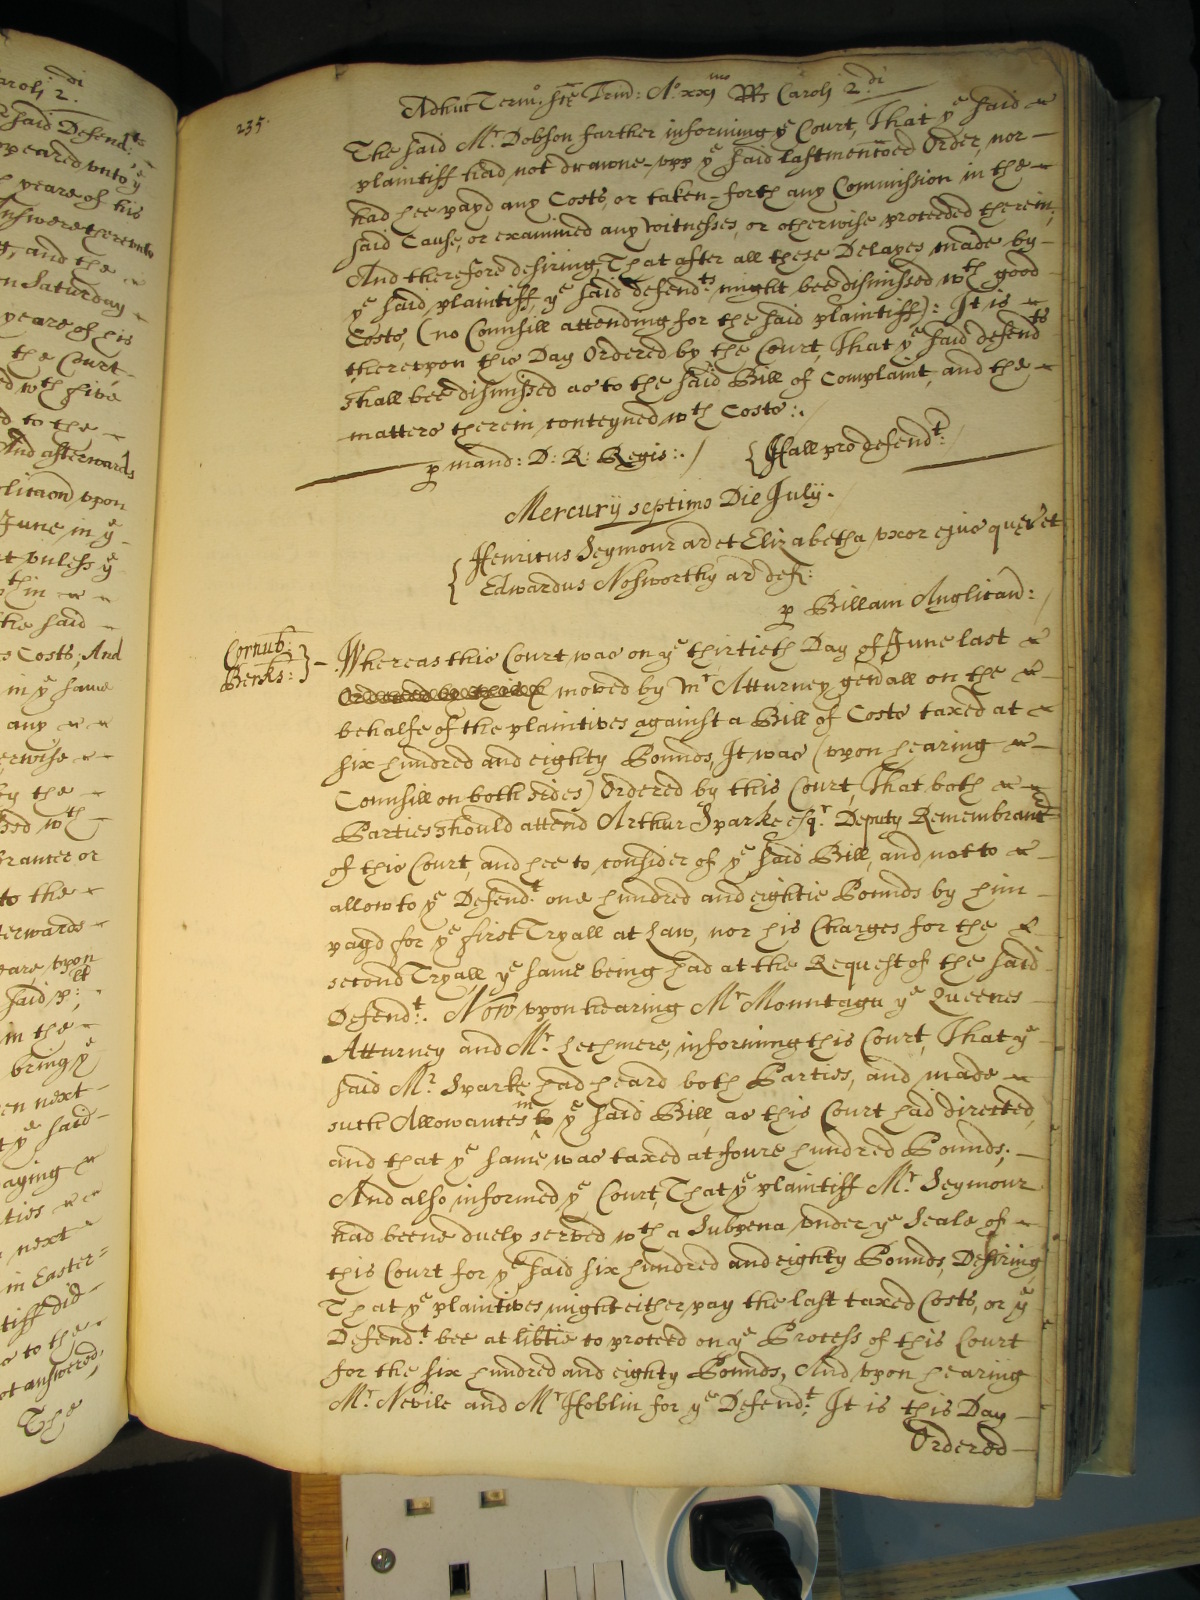 aroli 2.di
said Defend:ts
ppeared vnto ye
yeare of his
Answere therevnto
, and the
on Saturday
yeare of his
the Court
wth five
d to the
And afterwards
vpon
June in ye
vnless ye
in
the said
s Costs; And
in ye same
any
erwise
by the
sed wth
brancer or
to the
terwards
eare vpon
said p:lt
in the
bring ye
en next
t ye said
aying
ties
next
in Easter=
tiff did
to the
ot answered,
The
235.
Adhuc Term.o ste Trin: Ao. xximo RRs Caroli 2.di
The said Mr. Dobson farther informing ye Court, That ye said
plaintiff had not drawne vpp ye said lastmencoed Order, nor
had hee payd any Costs, or taken forth any Commission in the
said Cause, or examined any Witnesses, or otherwise proceeded therein;
And therefore desiring, That after all these Delayes made by
ye said plaintiff, ye said defend:ts might bee dismissed wth good
Costs, (no Counsill attending for the said plaintiff): It is
therevpon this Day Ordered by the Court, That ye said defend:ts
shall bee dismissed as to the said Bill of Complaint, and the
matters therein conteyned wth Costs:.
p mand: D: R: Regis:. / { Hall pro defend:t /
Mercurij septimo Die July.
{ Henricus Seymour ar et Elizabetha vxor eius quer et
Edwardus Nosworthy ar def:
p Billam Anglican: /
Cornub:
Berks: } Whereas this Court was on ye thirtieth Day of June last
moved by Mr Atturney gen̄all on the
behalfe of the plaintives against a Bill of Costs taxed at
six hundred and eighty Pounds, It was (vpon hearing
Counsill on both sides) Ordered by this Court, That both
Parties should attend Arthur Sparke esq.r Deputy Remembranc
of this Court, and hee to consider of ye said Bill, and not to
allow to ye Defend:t one hundred and eightie Pounds by him
payd for ye first Tryall at Law, nor his Charges for the
second Tryall, ye same being had at the Request of the said
Defend:t. Now vpon hearing Mr Mountagu ye Queenes
Atturney and Mr. Lechmere, informing this Court, That ye
said Mr. Sparke had heard both Parties, and made
such Allowances in ye said Bill, as this Court had directed,
and that ye same was taxed at foure hundred Pounds;
And also informed ye Court, That ye plaintiff Mr. Seymour
had beene duely served wth a Subpena vnder ye Seale of
this Court for ye said six hundred and eighty Pounds, Desiring,
That ye plaintives might either pay the last taxed Costs, or ye
Defend:t bee at libtie to proceed on ye Process of this Court
for the six hundred and eighty Pounds, And vpon hearing
Mr. Nevile and Mr Hoblin for ye Defend:t, It is this Day
Ordered